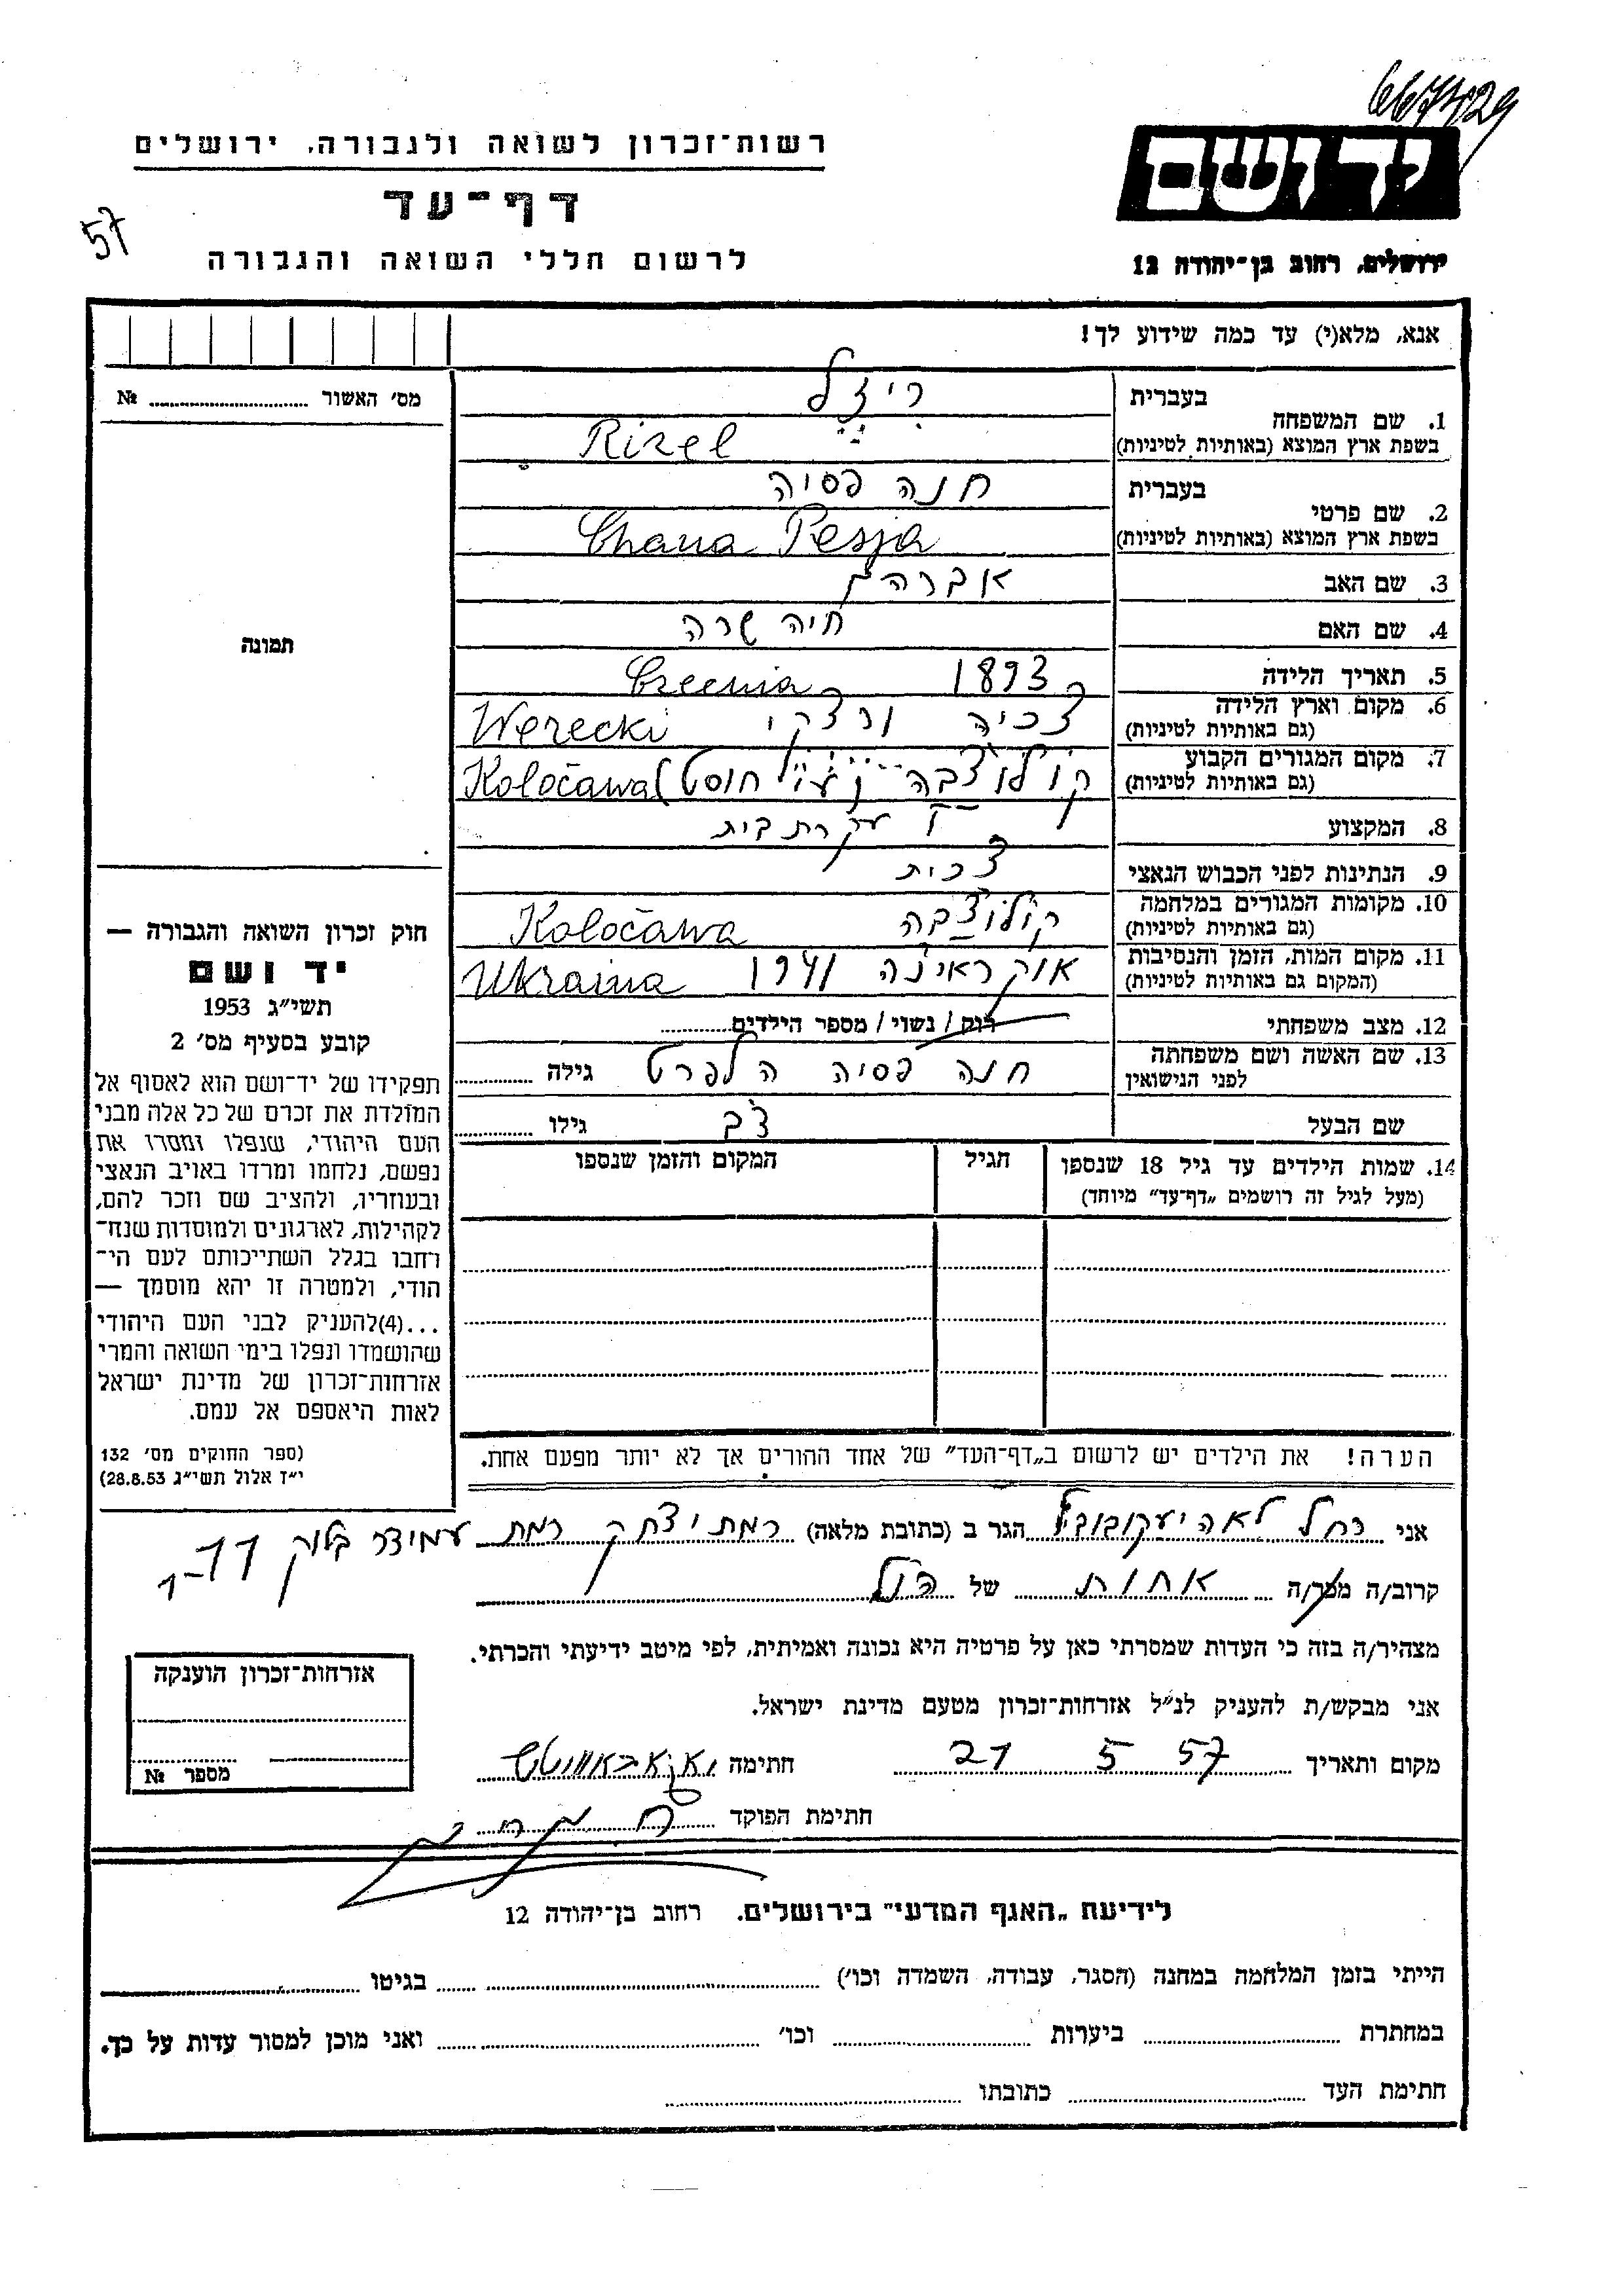 667429
רשות־זכרון לשואה ולגבורה, ירושלים
יד ושם
דף־עד
57
לרשום חללי השואה והגבורה
ירושלים, רחוב בן־יהודה 12
אנא, מלא(י) עד כמה שידוע לך!
מס' האשור № 
בעברית ריזל
1. שם המשפחה
בשפת ארץ המוצא (באותיות לטיניות) Rizel
בעברית חנה פסיה
2. שם פרטי
בשפת ארץ המוצא (באותיות לטיניות) Chana Pesja
3. שם האב אברהם
4. שם האם חיה שרה
תמונה
5. תאריך הלידה 1893
6. מקום וארץ הלידה
(גם באותיות לטיניות) צכיה ורצקי Werecki
7. מקום המגורים הקבוע
(גם באותיות לטיניות) קולוצ'בה ע"י חוסט Koločawa
8. המקצוע עקרת בית
9. הנתינות לפני הכבוש הנאצי צ'כית
10. מקומות המגורים במלחמה
(גם באותיות לטיניות) קולוצ'בה Koločawa
11. מקום המות, הזמן והנסיבות
(המקום גם באותיות לטיניות) אוקראינה 1941 Ukraina
12. מצב משפחתי רוק / נשוי / מספר הילדים
13. שם האשה ושם משפחתה
לפני הנישואין חנה פסיה הלפרט גילה
שם הבעל צבי גילו
14. שמות הילדים עד גיל 18 שנספו
(מעל לגיל זה רושמים „דף־עד" מיוחד)
הגיל
המקום והזמן שנספו
חוק זכרון השואה והגבורה —
יד ושם
תשי"ג 1953
קובע בסעיף מס' 2
תפקידו של יד־ושם הוא לאסוף אל
המולדת את זכרם של כל אלה מבני
העם היהודי, שנפלו ומסרו את
נפשם, נלחמו ומרדו באויב הנאצי
ובעוזריו, ולהציב שם וזכר להם,
לקהילות, לארגונים ולמוסדות שנח־
רחבו בגלל השתייכותם לעם הי־
הודי, ולמטרה זו יהא מוסמך —
...(4)להעניק לבני העם היהודי
שהושמדו ונפלו בימי השואה והמרי
אזרחות־זכרון של מדינת ישראל
לאות היאספם אל עמם.
(ספר החוקים מס' 132
י"ז אלול תשי"ג 28.8.53)
הערה! את הילדים יש לרשום ב„דף־העד" של אחד ההורים אך לא יותר מפעם אחת.
אני רחל לאה יעקובוביץ הגר ב (כתובת מלאה) רמת יצחק רמת עמידר בלוק
קרוב/ה מכר/ה אחות של הנ"ל
מצהיר/ה בזה כי העדות שמסרתי כאן על פרטיה היא נכונה ואמיתית, לפי מיטב ידיעתי והכרתי.
אני מבקש/ת להעניק לנ"ל אזרחות־זכרון מטעם מדינת ישראל.
מקום ותאריך 21 5 57 חתימה יאקאבאוויטש
חתימת הפוקד
אזרחות־זכרון הוענקה
מספר №
לידיעת „האגף המדעי" בירושלים. רחוב בן־יהודה 12
הייתי בזמן המלחמה במחנה (הסגר, עבודה, השמדה וכו') בגיטו
במחתרת ביערות וכו' ואני מוכן למסור עדות על כך.
חתימת העד כתובתו